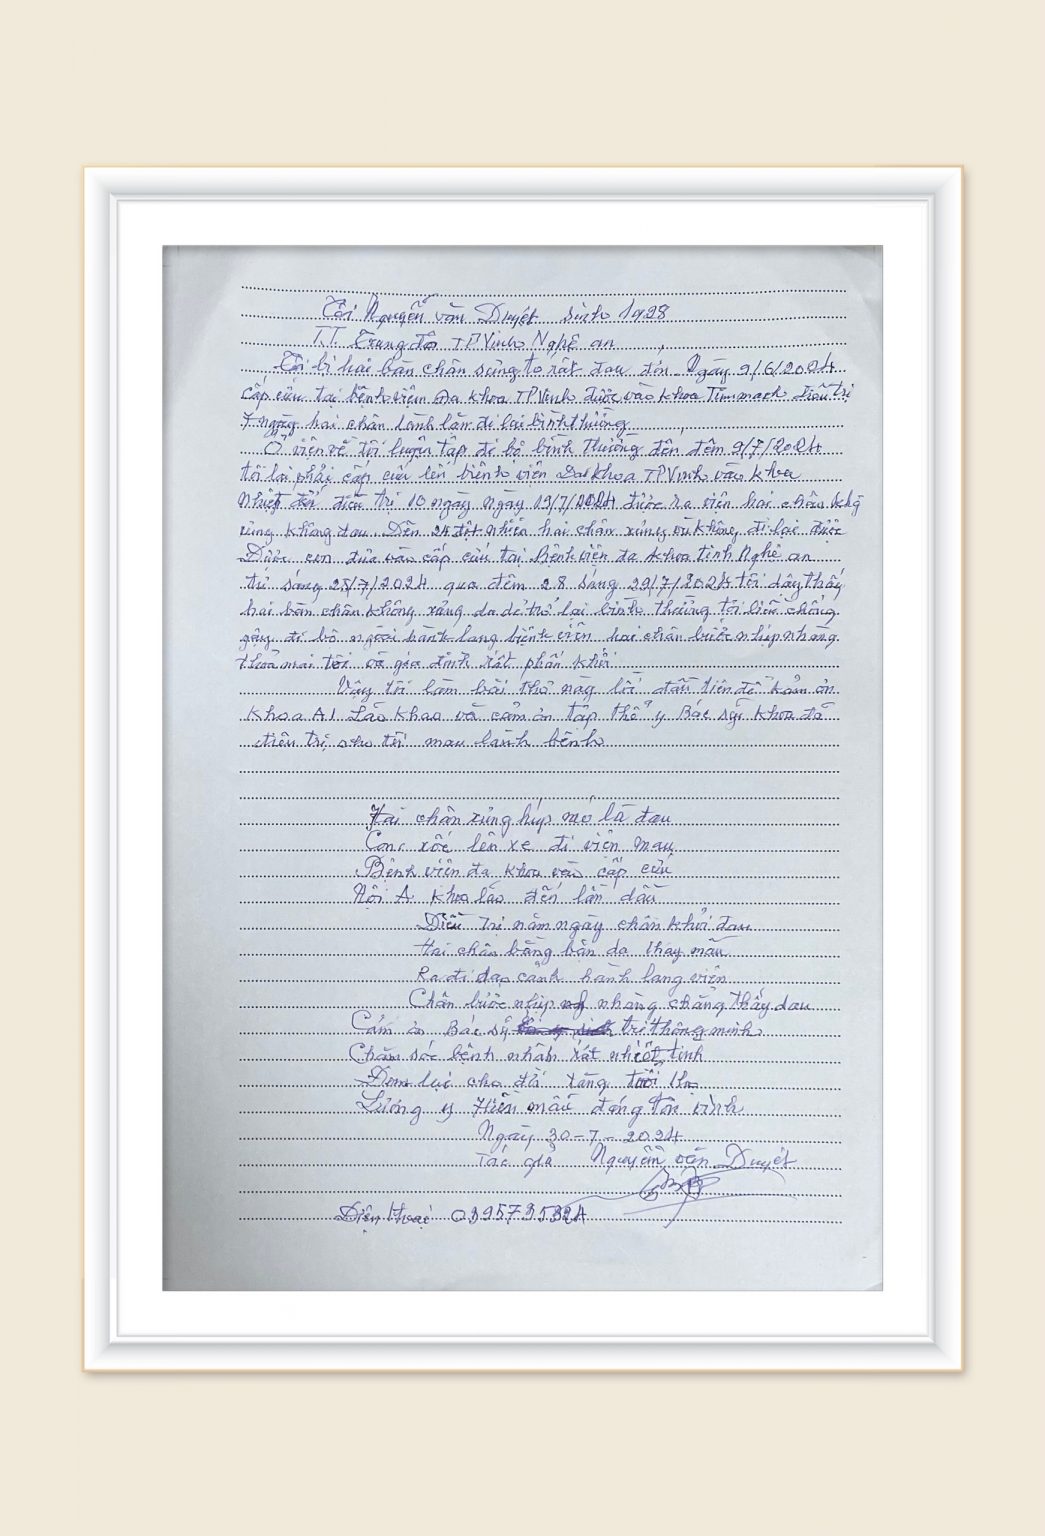 Tôi Nguyễn văn Duyệt sinh 1928
T.T. Trung đô TP Vinh Nghệ an
Tôi bị hai bàn chân sưng to rất đau đớn. Ngày 9/6/2024
Cấp cứu tại bệnh viện Đa khoa TP Vinh được vào khoa Tim mạch điều trị
7 ngày hai chân lành lặn đi lại bình thường
Ở viện về tôi luyện tập đi bộ bình thường đến đêm 9/7/2024
tôi lại phải cấp cứu lên biênh viên Đa khoa TP Vinh vào khoa
Nhiệt đới điều trị 10 ngày ngày 19/7/2024 được ra viện hai chân khg
xưng không đau. Đến 24 đột nhiên hai chân xưng vù không đi lại được
Được con đưa vào cấp cứu tại bệnh viện đa khoa tỉnh Nghệ an
từ sáng 25/7/2024 qua đêm 28 sáng 29/7/2024 tôi dậy thấy
hai bàn chân không xưng da dẻ trở lại bình thường tôi liền chống
gậy đi bộ ngoài hành lang biênh viên hai chân bước nhịp nhàng
thoả mái tôi và gia đình rất phấn khởi
Vậy tôi làm bài thơ này lời đầu tiên để cảm ơn
khoa A1 Lão khoa và cảm ơn tập thể y Bác sỹ khoa đã
điều trị cho tôi mau lành bệnh
Hai chân xưng húp mó là đau
Con xốc lên xe đi viện mau
Bệnh viên đa khoa vào cấp cứu
Nội A. khoa lão đến lần đầu
Điều trị năm ngày chân khỏi đau
Hai chân bằng bặn da thay mầu
Ra đi dạo cảnh hành lang viện
Chân bước nhịp nhàng chẳng thấy đau
Cảm ơn Bác sỹ trí thông minh
Chăm sóc bệnh nhân rất nhiệt tình
Đem lại cho đời tăng tuổi thọ
Lương y Hiền mẫu đáng tôn vinh
Ngày 30-7-2024
Tác giả Nguyễn văn Duyệt
Điện thoại 0395735324